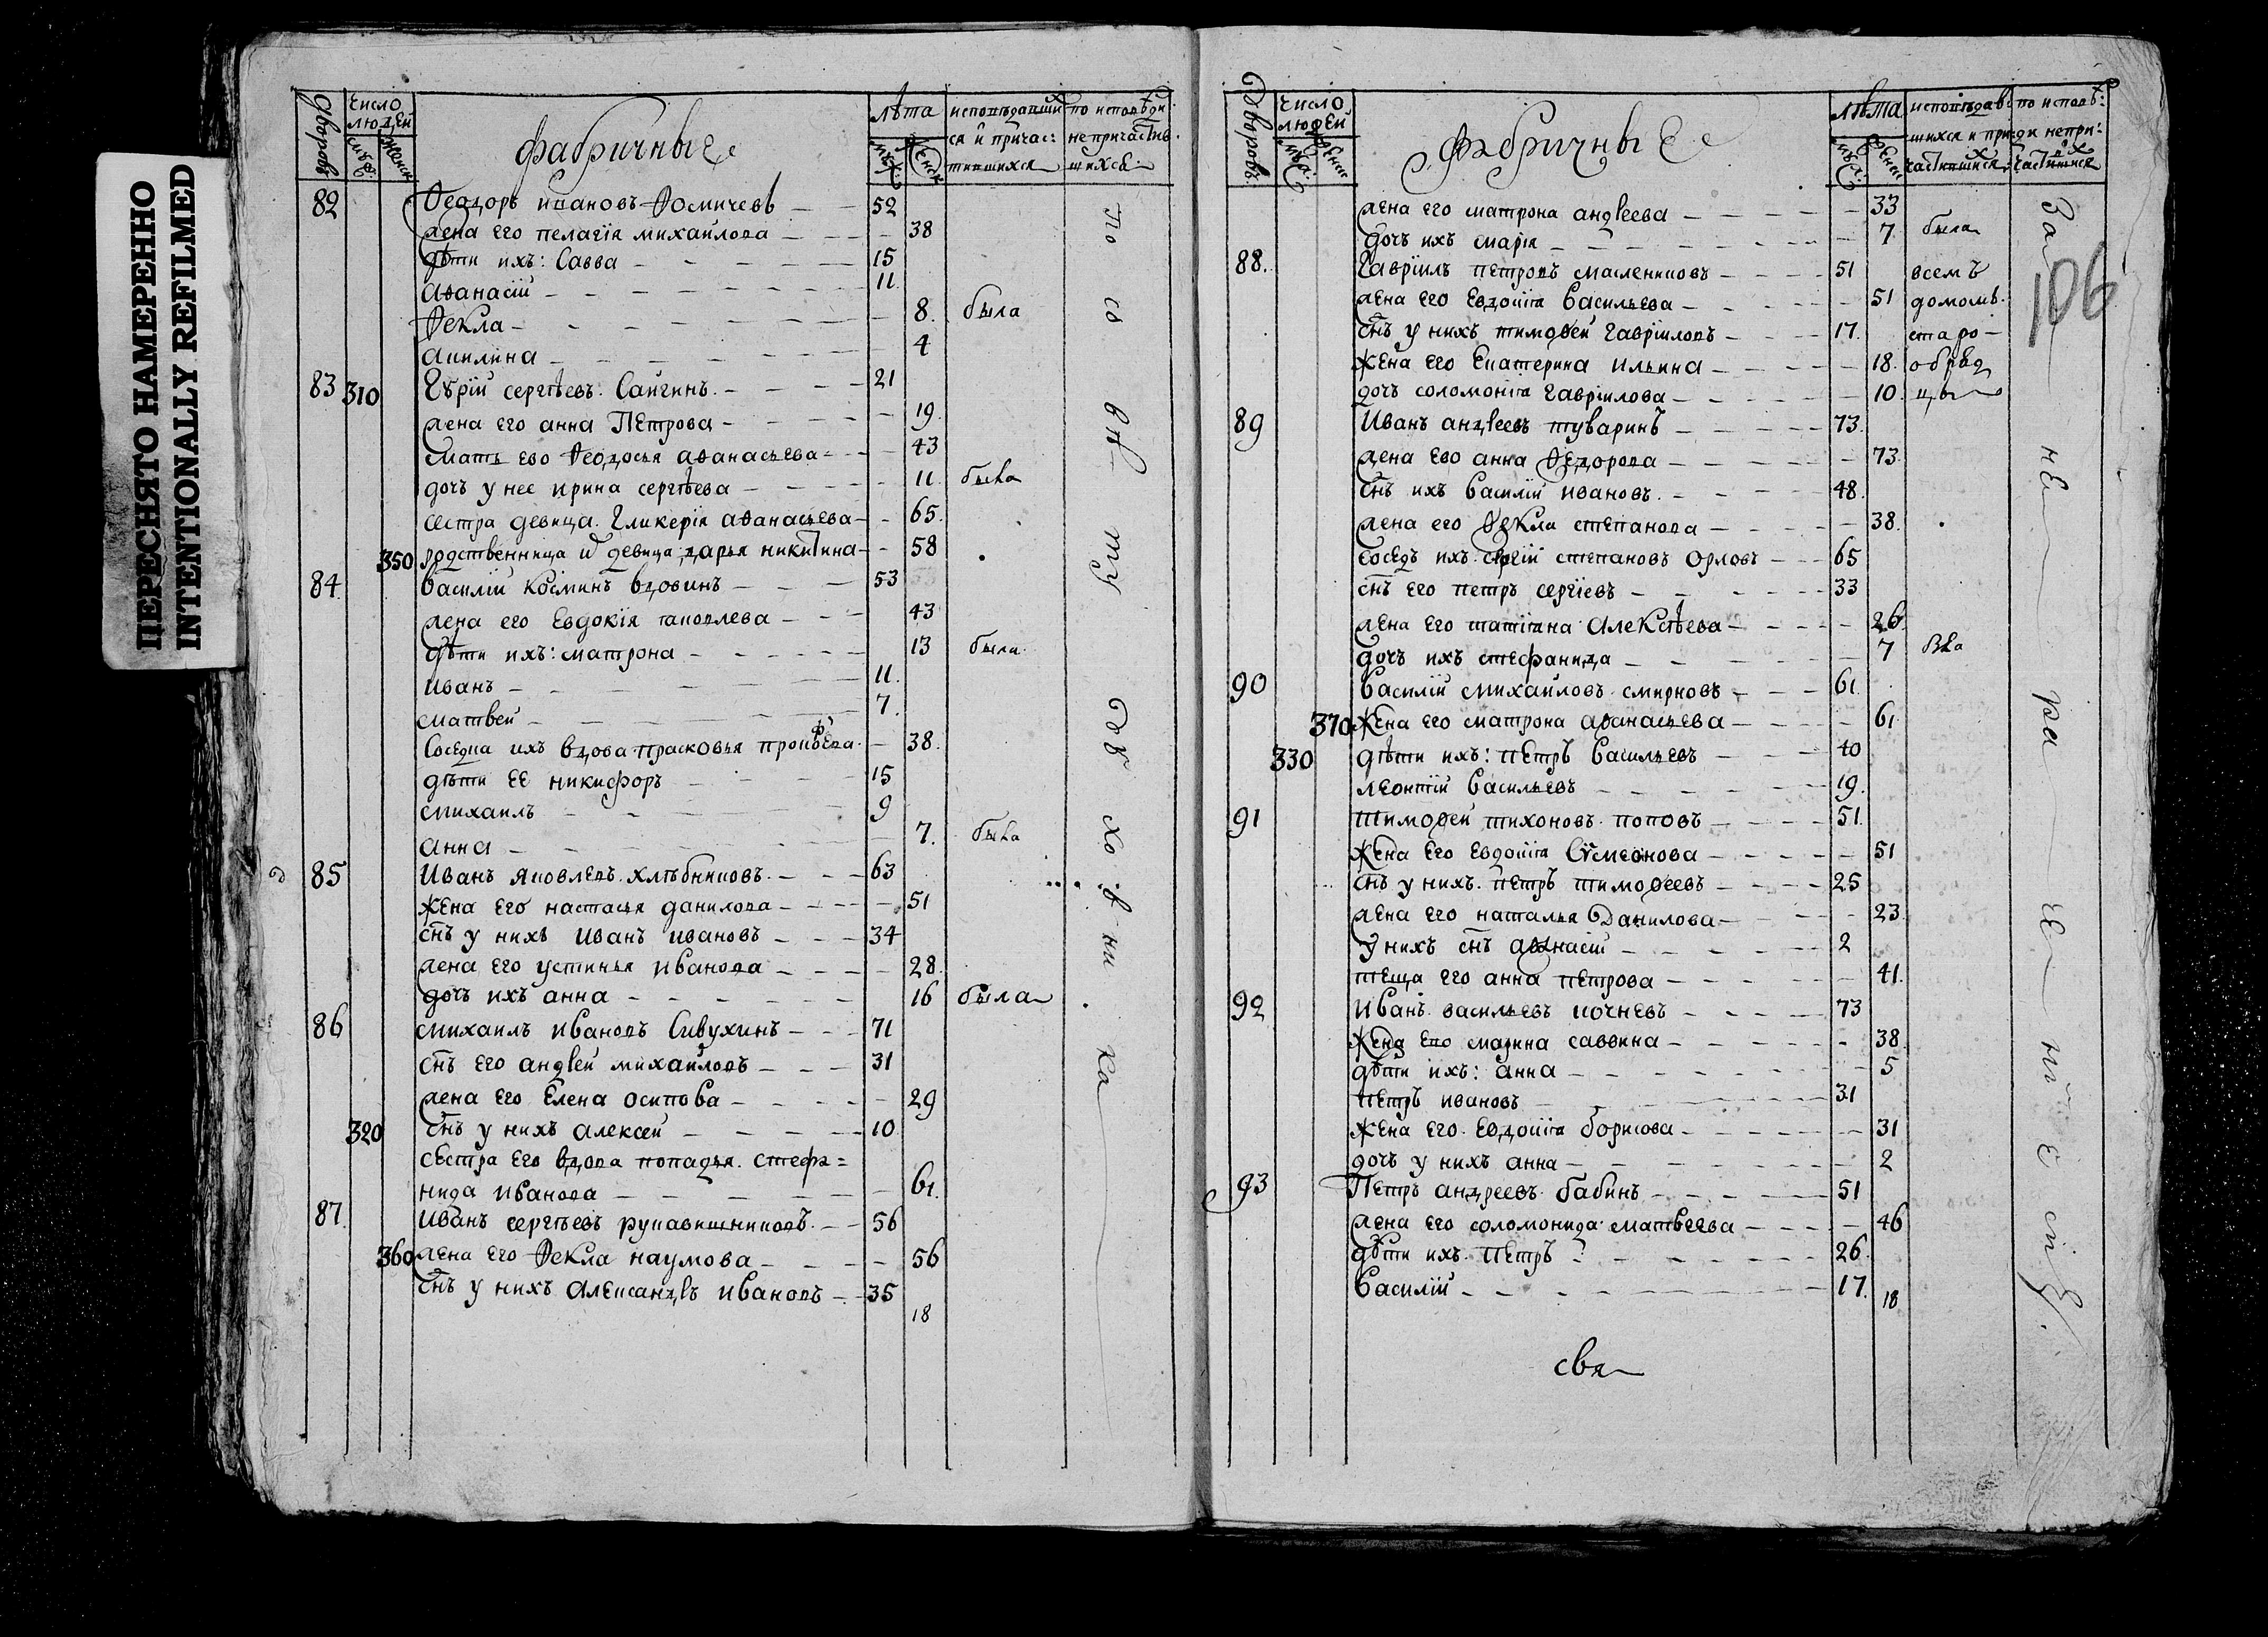 ПЕРЕСНЯТО НАМЕРЕННО
INTENTIONALLY REFILMED
дворовъ число людей фабричные лѣта исповѣдавши по исповѣди
ся и причас: непричастив
тившихся шихся
82 Ѳеодоръ ивановъ Ѳомичевъ 52
жена его пелагія михаилова 38
дѣти ихъ: Савва 15
аѳанасій 11
Ѳекла 8. была
акилина 4
83 310 Гурій сергѣевъ Сангинъ 21
жена его анна Петрова 19.
мать ево Ѳеодосья аѳанасьева 43
дочь у нее ирина сергѣева 11 была
сестра девица Гликерія аѳанасьева 65.
350 родственница и девица дарья никитина 58
84. василій косминъ вдовинъ 53
жена его Евдокія яковлева 43
дѣти ихъ: матрона 13 была
иванъ 11.
матвей 7.
соседка ихъ вдова прасковья прокофева 38.
дѣти ее никифоръ 15
михаилъ 9
анна 7. была
85 Иванъ яковлевъ хлѣбниковъ 63
жена его настасья данилова 51
снъ у нихъ иванъ ивановъ 34
жена его устинья иванова 28.
дочь ихъ анна 16 была
86 михаилъ ивановъ Сивухинъ 71
снъ его андрей михаиловъ 31
жена его Елена осипова 29
320 снъ у нихъ алексей 10
сестра его вдова попадья стефа=
нида иванова 61.
87. Иванъ сергѣевъ рукавишниковъ 56
360 жена его Ѳекла наумова 56
снъ у нихъ александръ ивановъ 35
18
по со вѣ ту дѣ хо в ни ка
106
дворовъ число людей фабричные лѣта исповѣдав по исповѣ:
шихся и при ди непри:
частившихся частившихся
жена его матрона андреева 33
дочь ихъ марія 7. была
88. Гавріилъ петровъ маслениковъ 51 всемъ
жена его Евдокія васильева 51 домомъ
снъ у нихъ тимоѳей гавріиловъ 17. старо-
жена его Екатерина ильина 18. обряд
дочь соломонія гавріилова 10. цы
89 Иванъ андреевъ туваринъ 73.
жена ево анна Ѳедорова 73.
снъ ихъ василій ивановъ 48.
жена его Ѳекла степанова 38.
соседъ ихъ сергій степановъ орловъ 65
снъ его петръ сергіевъ 33
жена его татіяна алексѣева 26.
дочь ихъ стефанида 7
90 василій михаиловъ смирновъ 61.
370 жена его матрона аѳанасьева 61
330 дѣти ихъ: петръ васильевъ 40
леонтій васильевъ 19.
91 тимоѳей тихоновъ поповъ 51.
жена его евдокія сѵмеонова 51
снъ у нихъ петръ тимоѳеевъ 25
жена его наталья данилова 23.
у нихъ снъ аѳанасій 2
теща его анна петрова 41.
92 Иванъ васильевъ кочневъ 73
жена ево марина саввина 38.
дѣти ихъ: анна 5
петръ ивановъ 31
жена его евдокія борисова 31
дочь у нихъ анна 2
93 Петръ андреевъ бабинъ 51
жена его соломонида матвеева 46
дѣти ихъ петръ 26.
василій 17.
18
За не ра че ні е мъ
свя